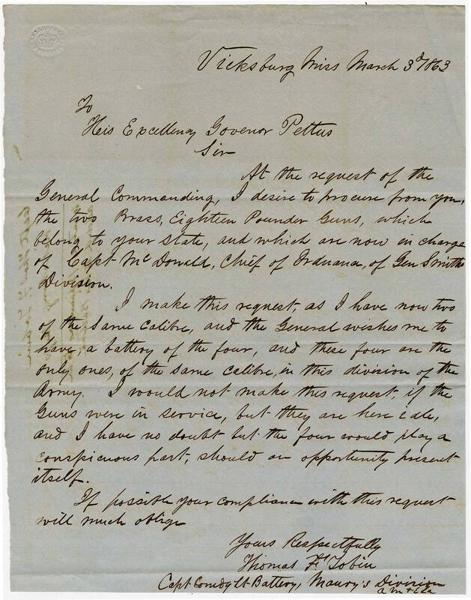 Vicksburg Miss March 3d 1863
To
His Excellency Govenor Pettus
Sir
At the request of the
General Commanding, I desire to procure from you,
the two Brass, Eighteen Pounder Guns, which
belong to your State, and which are now in charge
of Capt McDonald, Chief of Ordnance, of Gen Smiths
Division.
I make this request, as I have now two
of the same calibre, and the General wishes me to
have, a battery of the four, and these four are the
only ones, of the same calibre, in this division of the
Army. I would not make this request, if the
Guns were in service, but they are here idle,
and I have no doubt but the four would play a
conspicuous part, should an opportunity present
itself.
If possible your compliance with this request
will much oblige
Yours Respectfully
Thomas F. Tobin
Capt Comdg Lt Battery, Maury's Division